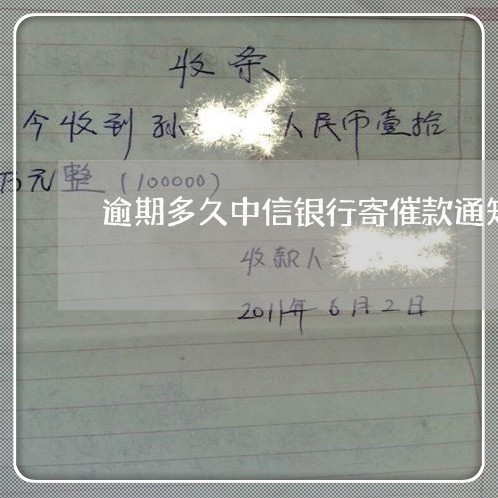 收条
今收到孙 人民币壹拾
万元整(100000)
逾期多久中信银行寄催款通知
收款人:
2011年6月2日